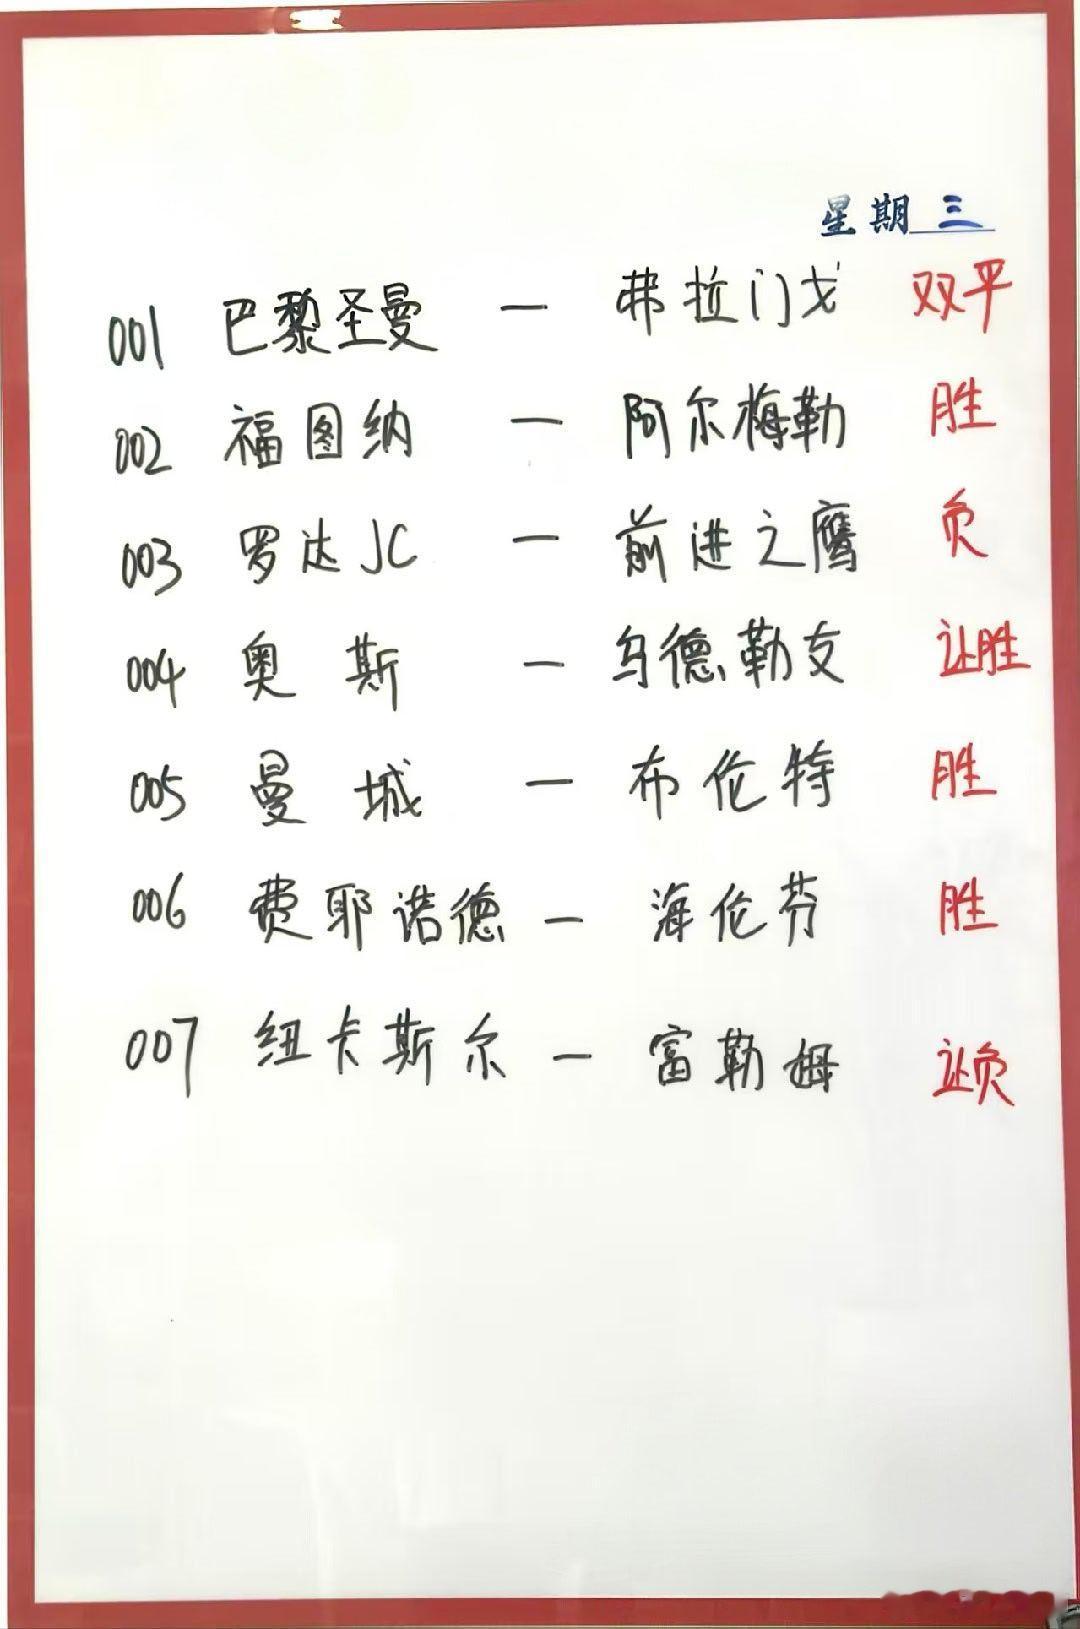 星期三
001 巴黎圣曼 — 弗拉门戈 双平
002 福图纳 — 阿尔梅勒 胜
003 罗达JC — 前进之鹰 负
004 奥斯 — 乌德勒支 让胜
005 曼城 — 布伦特 胜
006 费耶诺德 — 海伦芬 胜
007 纽卡斯尔 — 富勒姆 让负